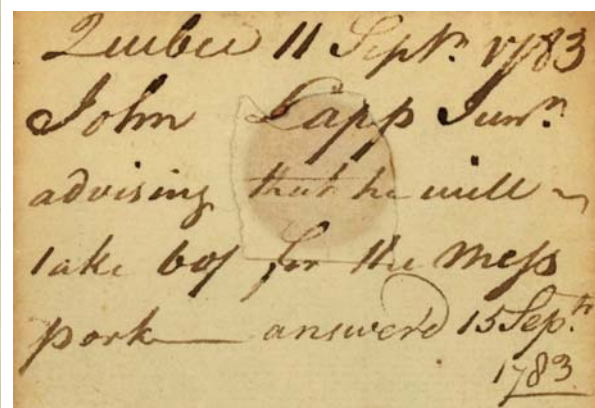 Quebec 11 Septr. 1783
John Lapp Junr.
advising that he will
take 60/ for the Mess
pork — answerd 15 Septr.
1783